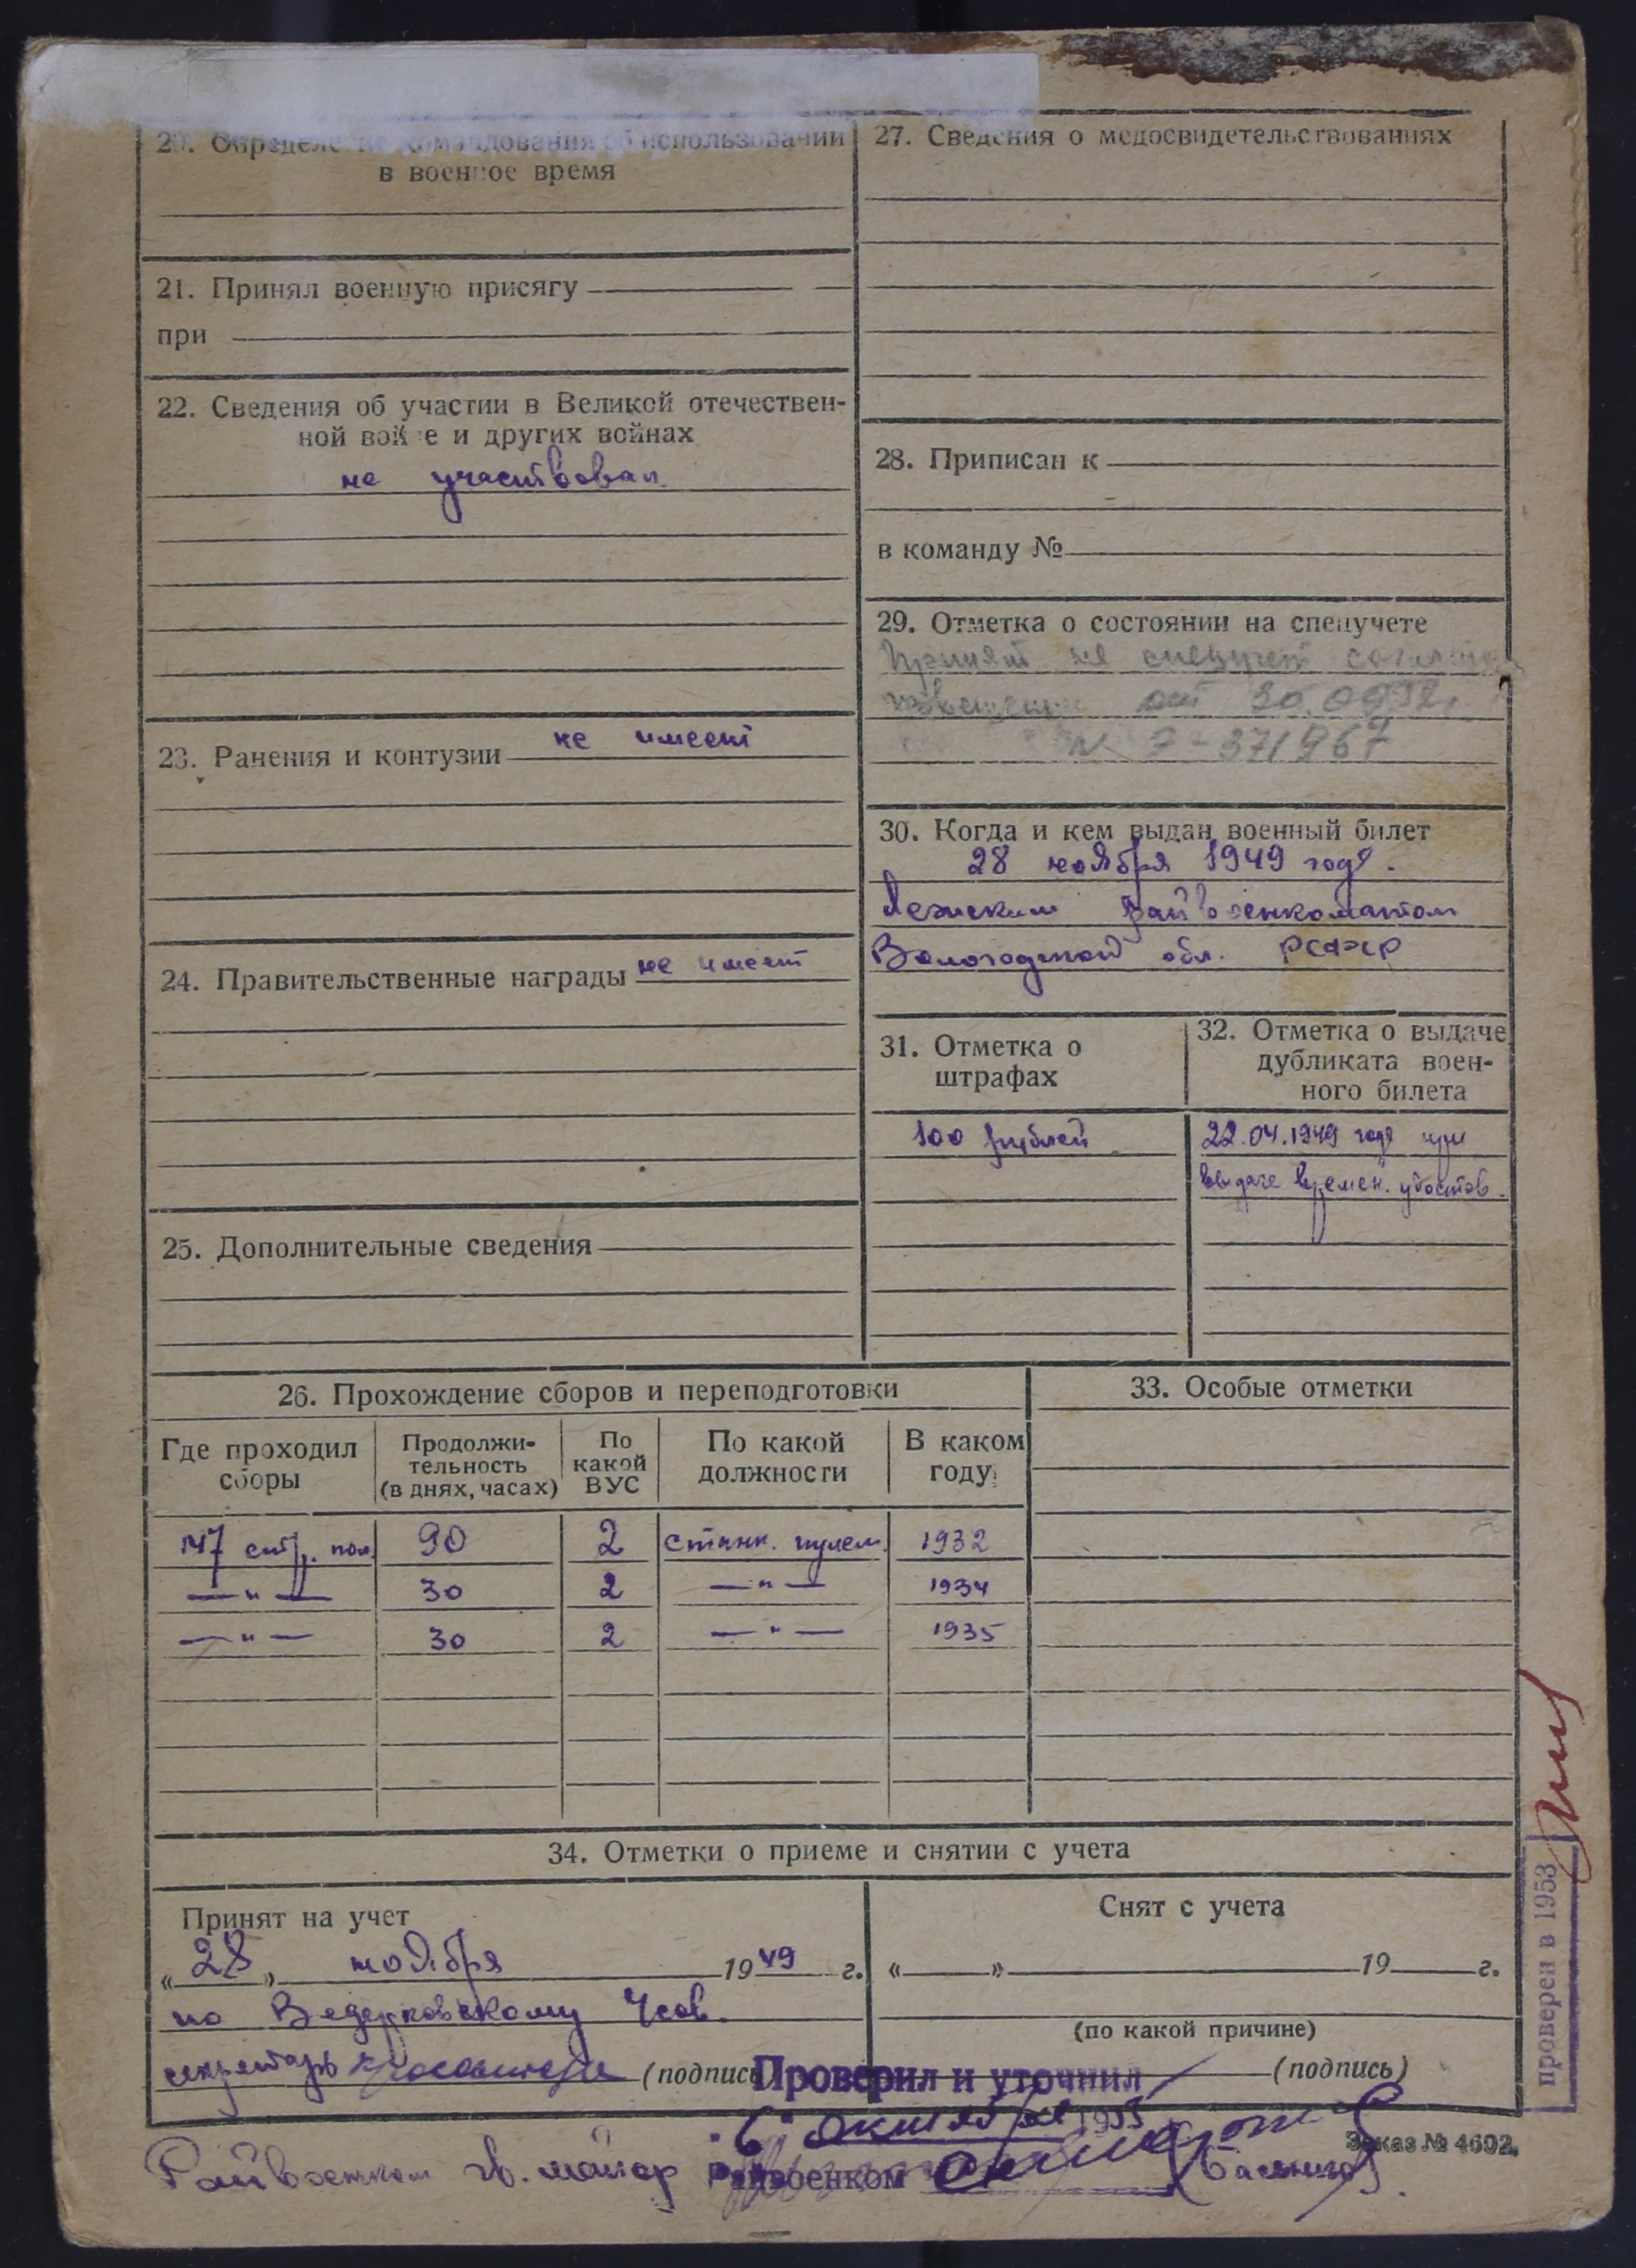 20. Определение командования об использовании
в военное время
21. Принял военную присягу
при
22. Сведения об участии в Великой отечествен-
ной войне и других войнах
не участвовал
23. Ранения и контузии не имеет
24. Правительственные награды не имеет
25. Дополнительные сведения
27. Сведения о медосвидетельствованиях
28. Приписан к
в команду №
29. Отметка о состоянии на спецучете
Принят на спецучет
от 30.09.52г.
30. Когда и кем выдан военный билет
28 ноября 1949 года.
Лежским Райвоенкоматом
Вологодской обл. РСФСР
31. Отметка о
штрафах
100 рублей
32. Отметка о выдаче
дубликата воен-
ного билета
22.04.1949 года при
выдаче времен. удостов.
26. Прохождение сборов и переподготовки
Где проходил
сборы
Продолжи-
тельность
(в днях, часах)
По
какой
ВУС
По какой
должности
В каком
году
147 стр. пол. 90 2 станк. пулем. 1932
—"— 30 2 —"— 1934
—"— 30 2 —"— 1935
33. Особые отметки
34. Отметки о приеме и снятии с учета
Принят на учет
«28» ноября 1949 г.
по Ведерковскому Усов.
секретарь (подпись)
Снят с учета
« » 19 г.
(по какой причине)
(подпись)
Проверил и уточнил
"6" октября 1953
Райвоенком гв. майор
Райвоенком
Заказ № 4602.
проверен в 1953